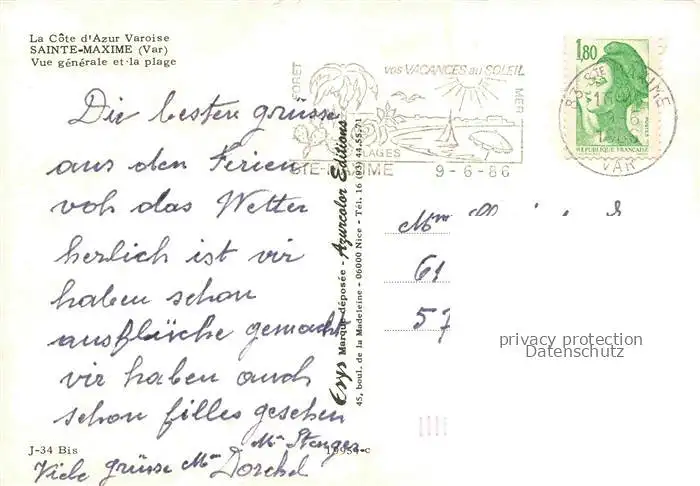 La Côte d'Azur Varoise
SAINTE-MAXIME (Var)
Vue générale et la plage
Die besten grüsse
aus den Ferien
voh das Wetter
herlich ist vir
haben schon
ausflüche gemacht
vir haben auch
schon filles gesehen
Mme Stenger
Viele grüsse Mme Dorchel
J-34 Bis
19954-c
Erys Marque déposée - Azurcolor Editions
45, boul. de la Madeleine - 06000 Nice - Tel. 16 (93) 44.55.71
FORET
vos VACANCES au SOLEIL
MER
PLAGES
STE-MAXIME
9-6-86
1,80
REPUBLIQUE FRANÇAISE
83 STE MAXIME
VAR
Mme
61
57
privacy protection
Datenschutz